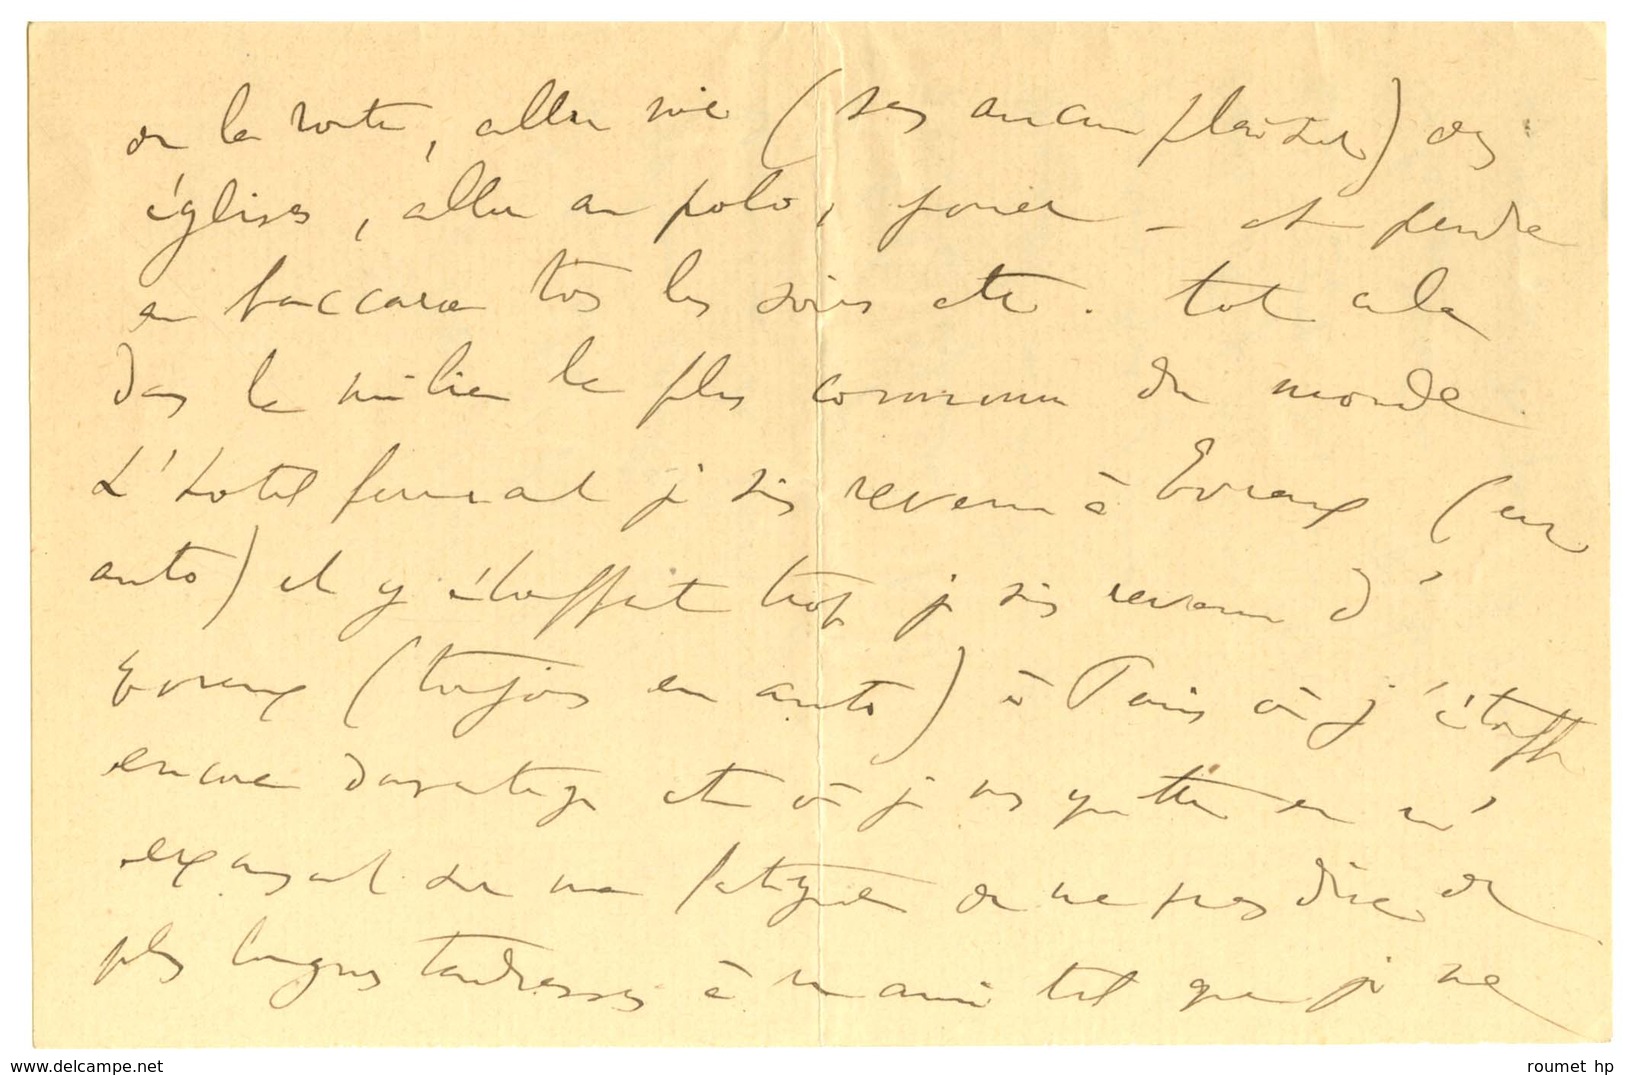 de la route, aller voir (sans aucun plaisir) des
églises, aller au polo, jouer – et perdre
au baccara tous les soirs etc. tout cela
dans le milieu le plus commun du monde.
L'hotel fermant je suis revenu à Evreux (en
auto) et y étouffant trop je suis revenu d'
Evreux (toujours en auto) à Paris où j'étouffe
encore davantage et où je vous quitte en m'
excusant sur ma fatigue de ne pas dire de
plus longues tendresses à un ami tel que je ne
roumet hp